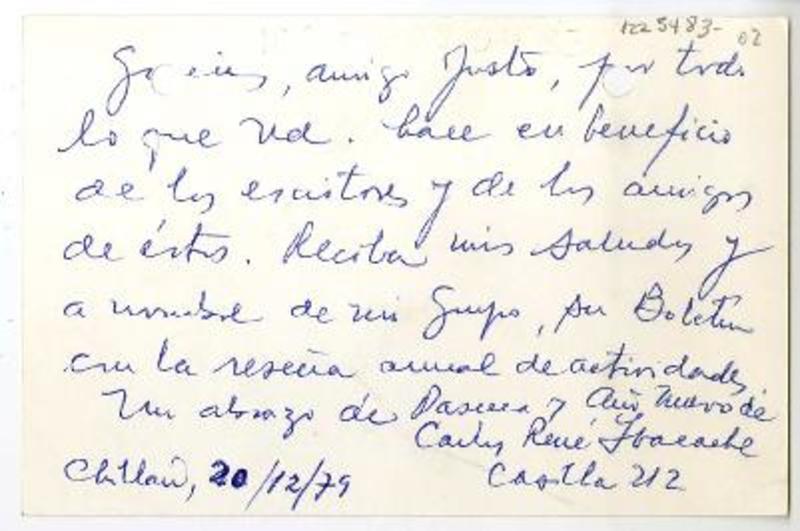 1225483-02
Gracias, amigo Justo, por todo
lo que Ud. hace en beneficio
de los escritores y de los amigos
de éstos. Reciba mis saludos y
a nombre de mi Grupo, su Boletín
con la reseña anual de actividades.
Un abrazo de Pascua y Año Nuevo de
Carlos René Ibacache
Chillán, 20/12/79
Casilla 212